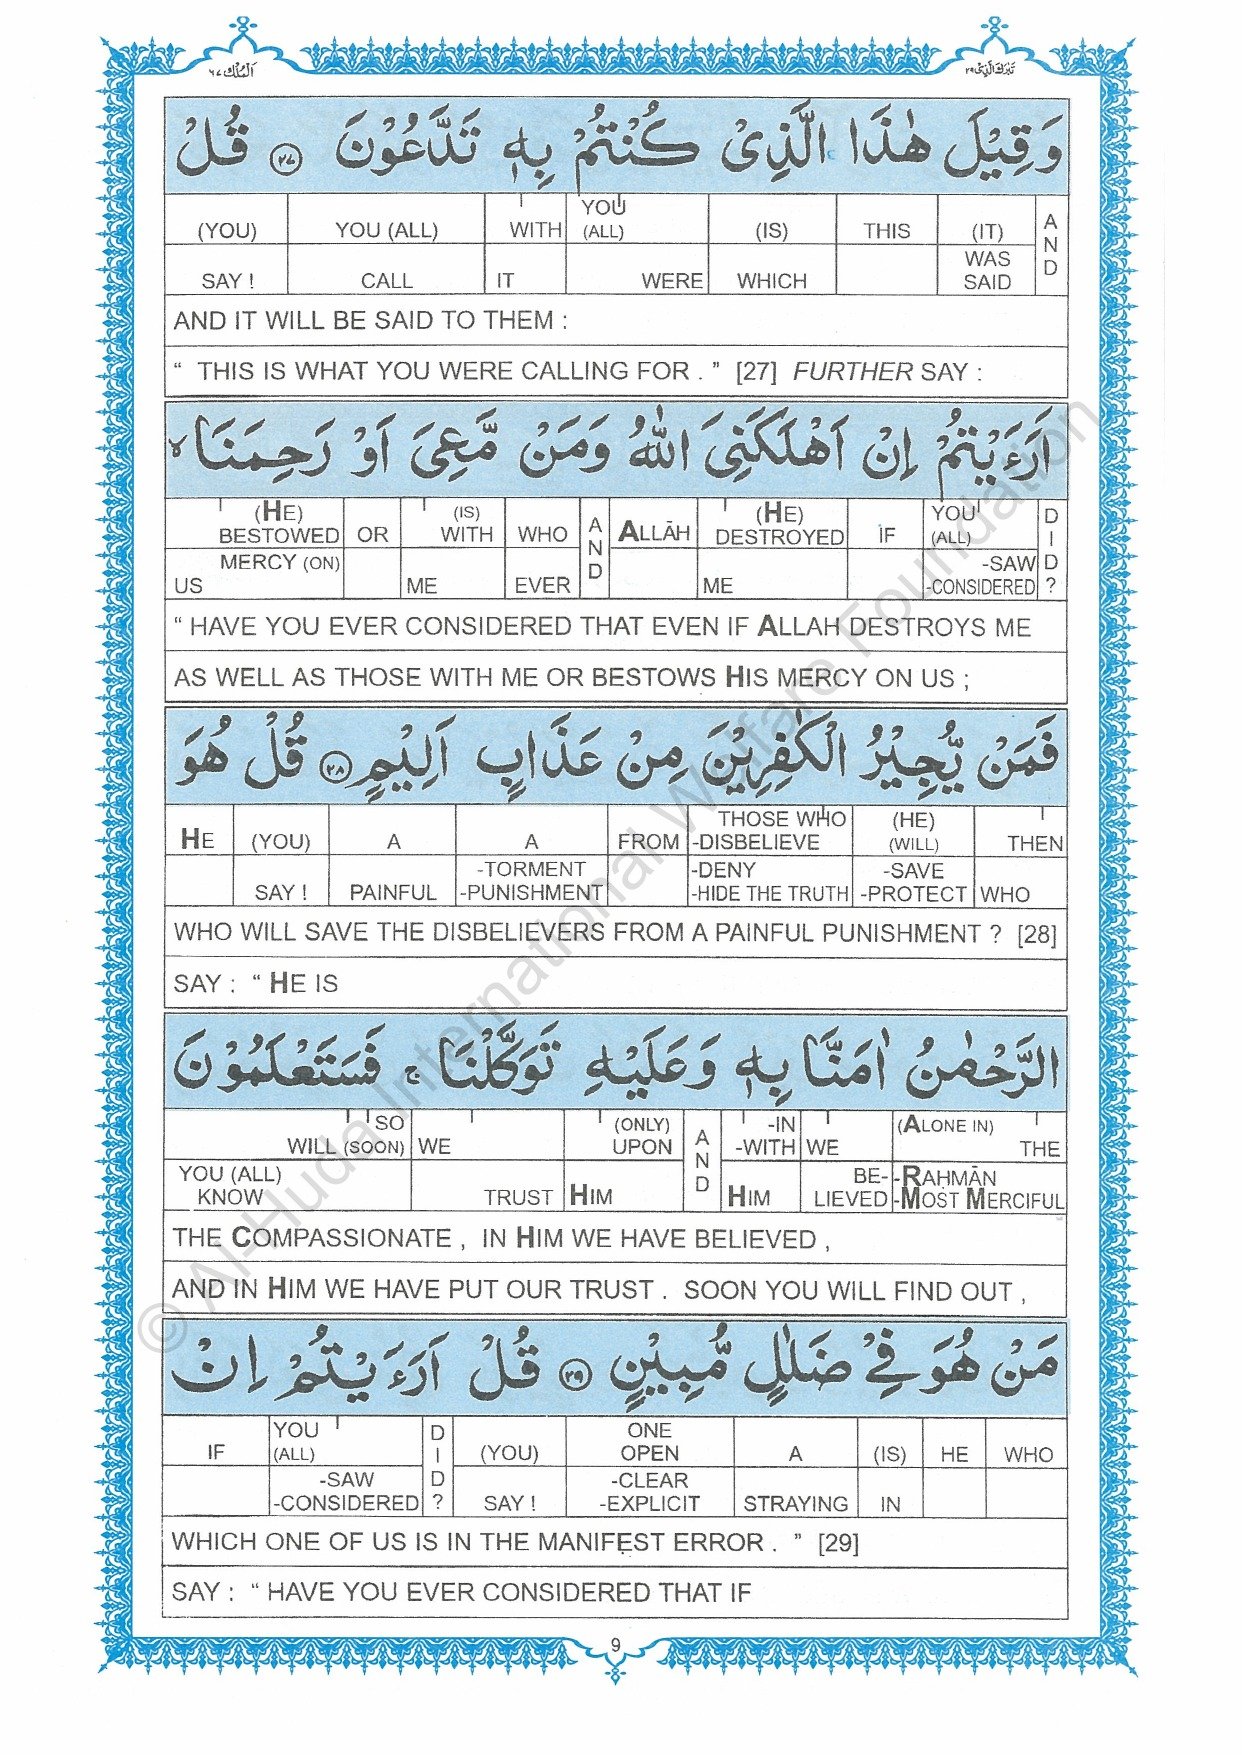 تَبٰرَكَ الَّذِىْ ٢٩
اَلْمُلْك ٦٧
وَقِيْلَ هٰذَا الَّذِىْ كُنْتُمْ بِهٖ تَدَّعُوْنَ ٢٧ قُلْ
(YOU) YOU (ALL) WITH YOU (ALL) (IS) THIS (IT) AND
SAY ! CALL IT WERE WHICH WAS SAID
AND IT WILL BE SAID TO THEM :
“ THIS IS WHAT YOU WERE CALLING FOR . ” [27] FURTHER SAY :
اَرَءَيْتُمْ اِنْ اَهْلَكَنِىَ اللّٰهُ وَمَنْ مَّعِىَ اَوْ رَحِمَنَا ۙ
(HE) BESTOWED OR (IS) WITH WHO AND ALLĀH (HE) DESTROYED IF YOU (ALL) DID?
US MERCY (ON) ME EVER ME -SAW -CONSIDERED
“ HAVE YOU EVER CONSIDERED THAT EVEN IF ALLAH DESTROYS ME
AS WELL AS THOSE WITH ME OR BESTOWS HIS MERCY ON US ;
فَمَنْ يُّجِيْرُ الْكٰفِرِيْنَ مِنْ عَذَابٍ اَلِيْمٍ ٢٨ قُلْ هُوَ
HE (YOU) A A FROM THOSE WHO -DISBELIEVE (HE) (WILL) THEN
SAY ! PAINFUL -TORMENT -PUNISHMENT -DENY -HIDE THE TRUTH -SAVE -PROTECT WHO
WHO WILL SAVE THE DISBELIEVERS FROM A PAINFUL PUNISHMENT ? [28]
SAY : “ HE IS
الرَّحْمٰنُ اٰمَنَّا بِهٖ وَعَلَيْهِ تَوَكَّلْنَا ۚ فَسَتَعْلَمُوْنَ
SO WILL (SOON) WE (ONLY) UPON AND -IN -WITH WE (ALONE IN) THE
YOU (ALL) KNOW TRUST HIM HIM BE-LIEVED -RAḤMĀN -MOST MERCIFUL
THE COMPASSIONATE , IN HIM WE HAVE BELIEVED ,
AND IN HIM WE HAVE PUT OUR TRUST . SOON YOU WILL FIND OUT ,
مَنْ هُوَ فِىْ ضَلٰلٍ مُّبِيْنٍ ٢٩ قُلْ اَرَءَيْتُمْ اِنْ
IF YOU (ALL) DID? (YOU) ONE OPEN A (IS) HE WHO
-SAW -CONSIDERED SAY ! -CLEAR -EXPLICIT STRAYING IN
WHICH ONE OF US IS IN THE MANIFEST ERROR . ” [29]
SAY : “ HAVE YOU EVER CONSIDERED THAT IF
9
© Al-Huda International Welfare Foundation